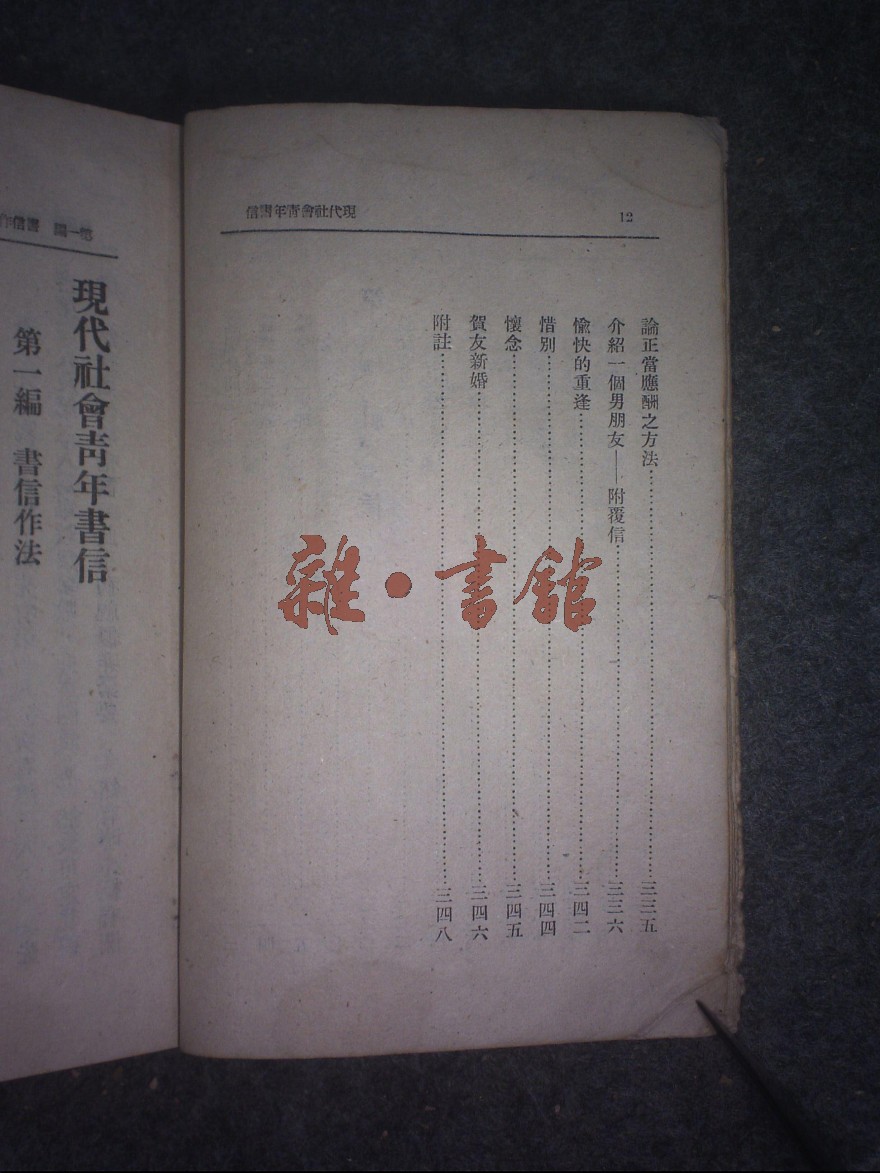 12
現代社會青年書信
論正當應酬之方法……三三五
介紹一個男朋友——附覆信……三三六
愉快的重逢……三四二
惜別……三四四
懷念……三四五
賀友新婚……三四六
附註……三四八
第一編 書信作
現代社會青年書信
第一編 書信作法
雜·書館